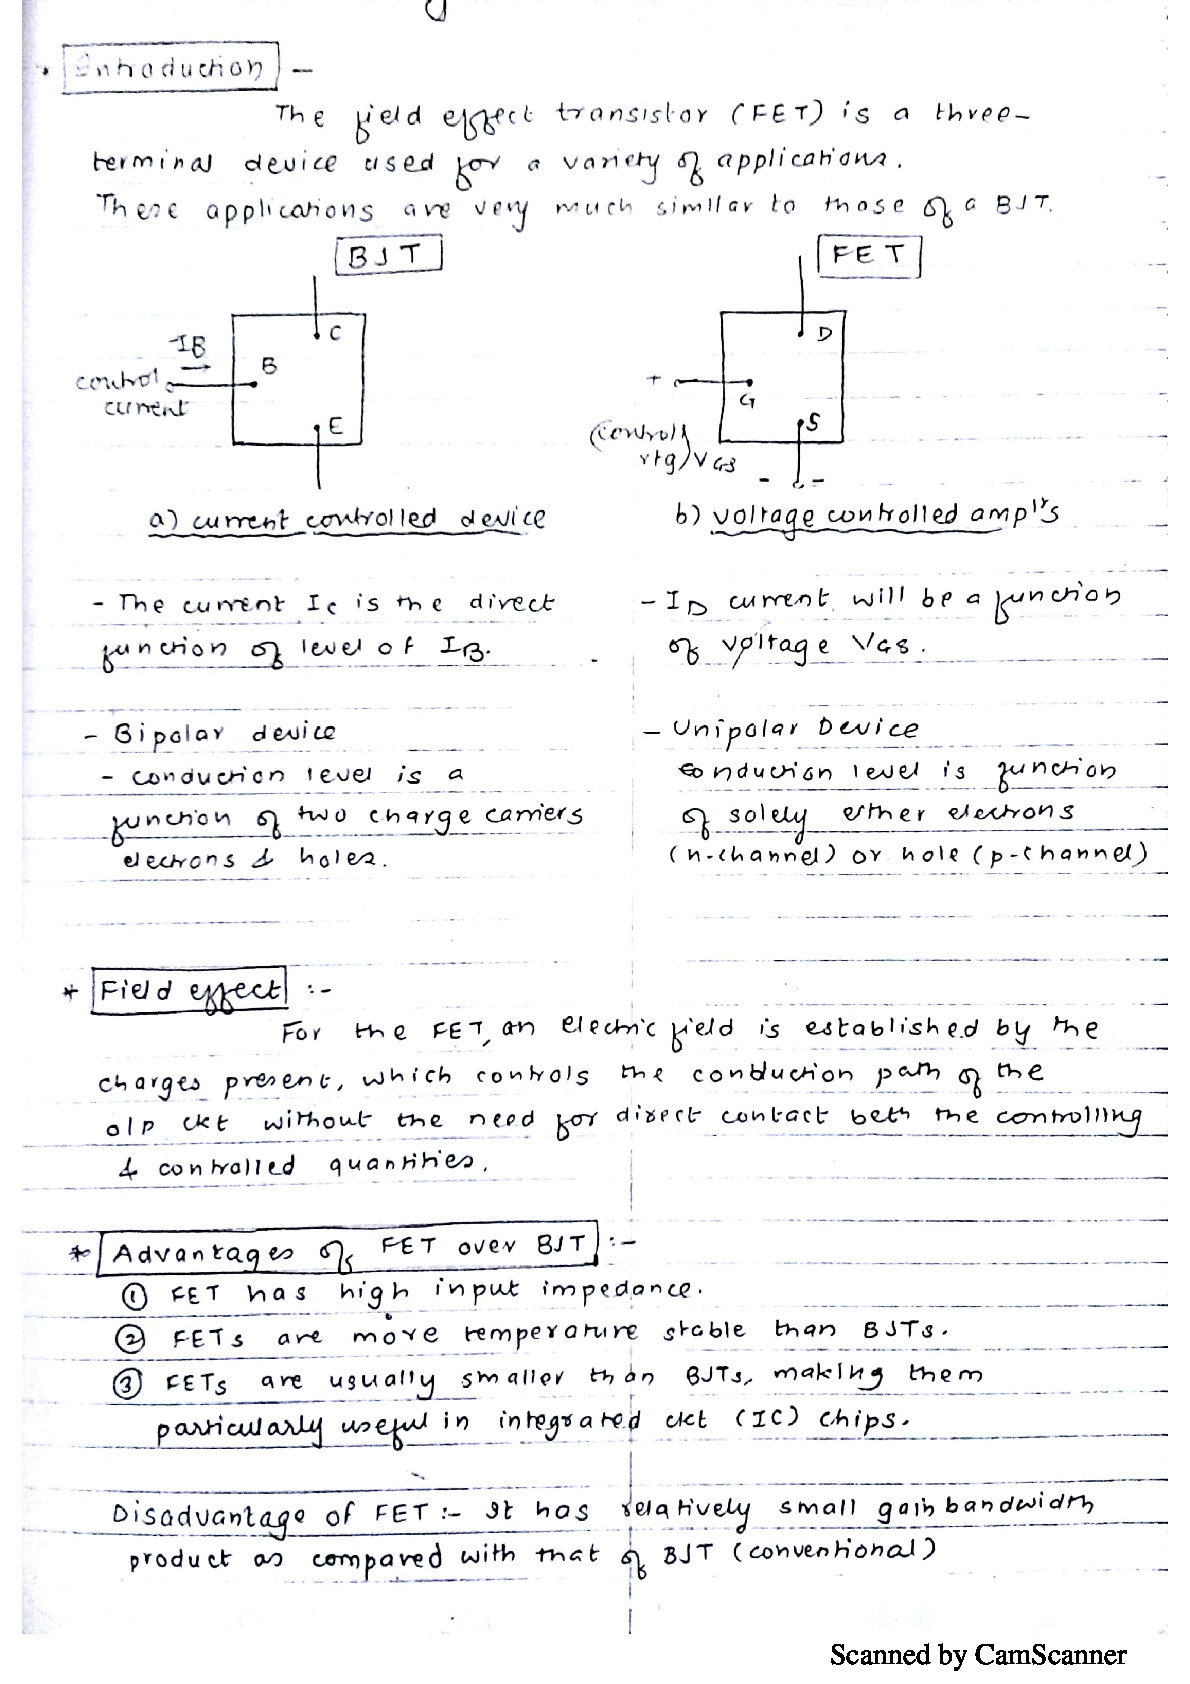 Introduction –
The field effect transistor (FET) is a three-
terminal device used for a variety of applications.
These applications are very much similar to those of a BJT.
BJT
C
IB
B
control
current
E
a) current controlled device
FET
D
+
G
S
(control
vtg) VGS
- -
b) voltage controlled ampl'rs
- The current IC is the direct
function of level of IB.
- Bipolar device
- conduction level is a
function of two charge carriers
electrons & holes.
- ID current will be a function
of voltage VGS.
- Unipolar Device
conduction level is function
of solely either electrons
(n-channel) or hole (p-channel)
* Field effect :-
For the FET, an electric field is established by the
charges present, which controls the conduction path of the
o/p ckt without the need for direct contact betn the controlling
& controlled quantities.
* Advantages of FET over BJT :-
① FET has high input impedance.
② FETs are more temperature stable than BJTs.
③ FETs are usually smaller than BJTs, making them
particularly useful in integrated ckt (IC) chips.
Disadvantage of FET :- It has relatively small gain bandwidth
product as compared with that of BJT (conventional)
Scanned by CamScanner